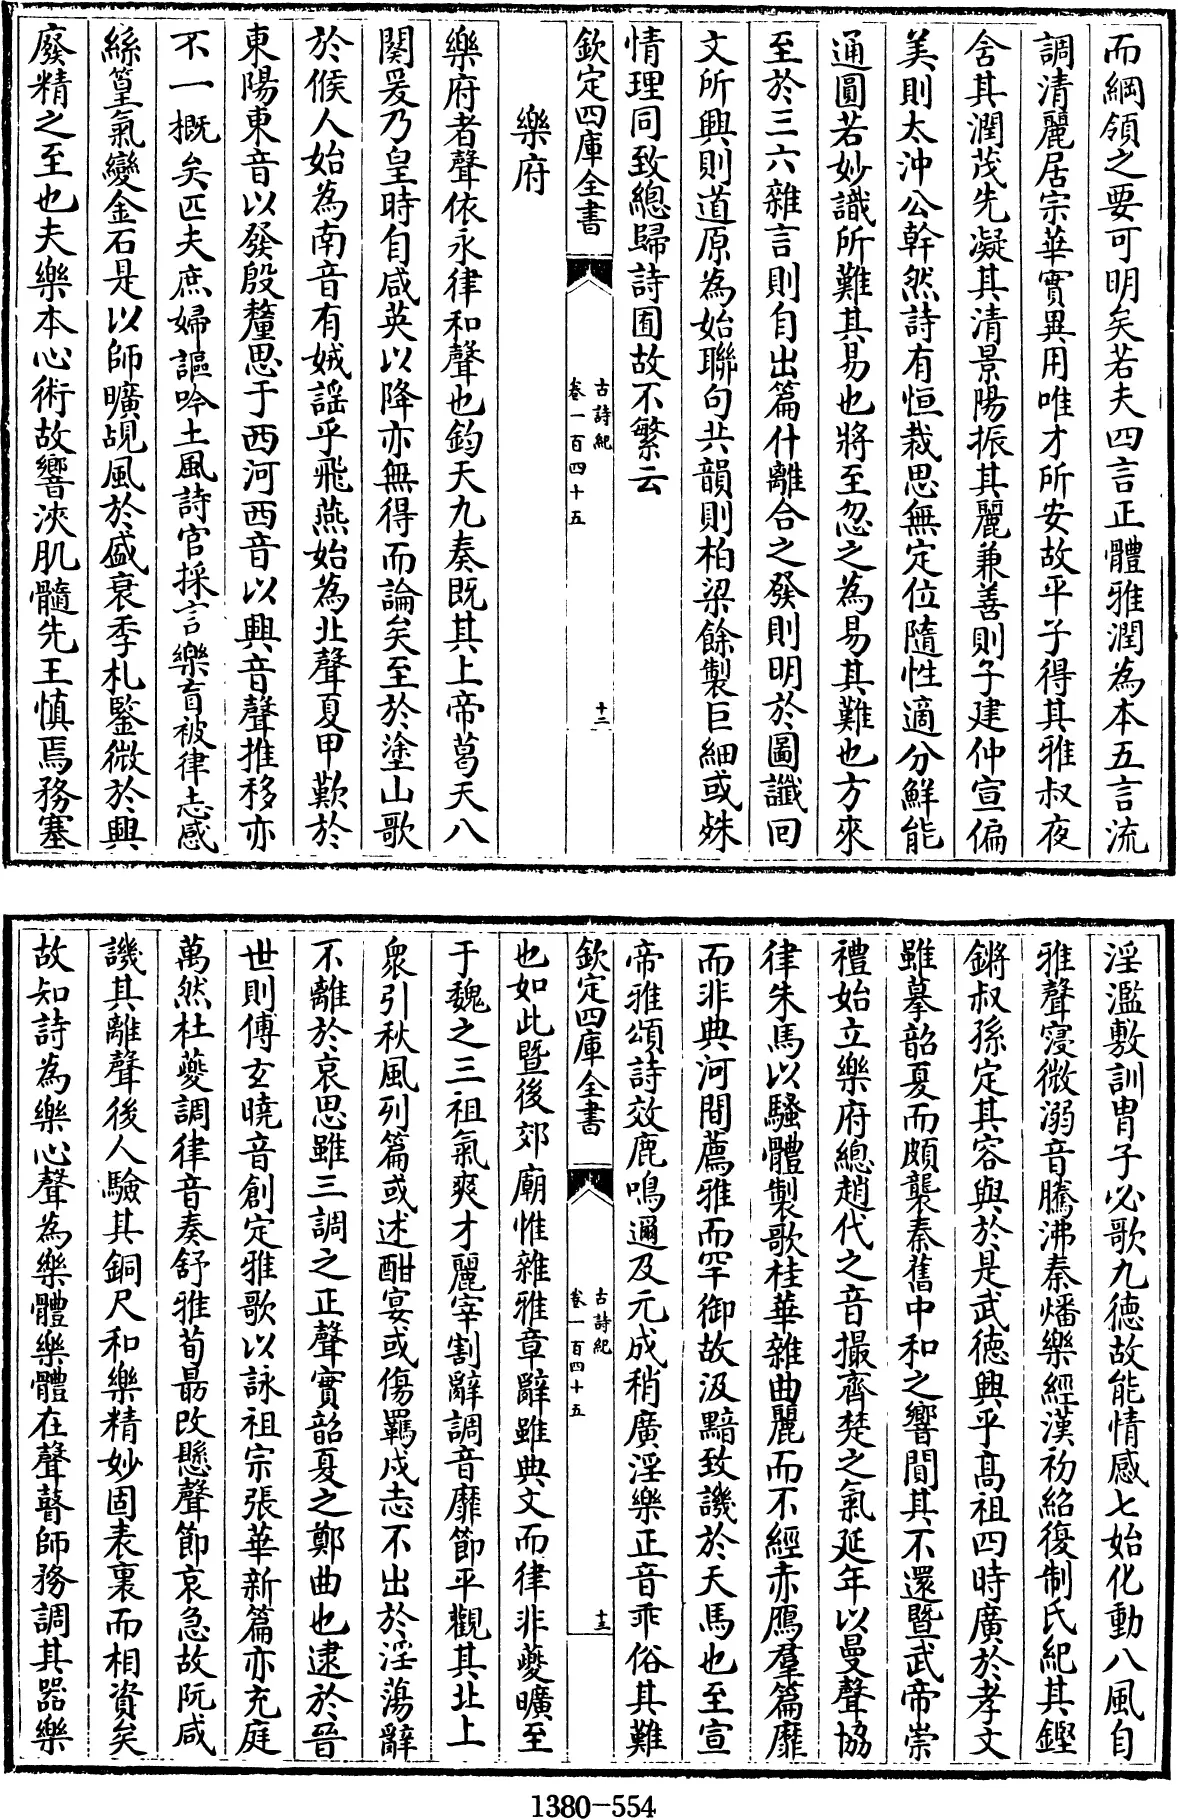 而綱領之要可明矣若夫四言正體雅潤為本五言流
調清麗居宗華實異用唯才所安故平子得其雅叔夜
含其潤茂先凝其清景陽振其麗兼善則子建仲宣偏
美則太沖公幹然詩有恒裁思無定位隨性適分鮮能
通圓若妙識所難其易也將至忽之為易其難也方來
至於三六雜言則自出篇什離合之發則明於圖讖回
文所興則道原為始聯句共韻則柏梁餘製巨細或殊
情理同致總歸詩囿故不繁云
欽定四庫全書 古詩紀 卷一百四十五 十二
樂府
樂府者聲依永律和聲也鈞天九奏既其上帝葛天八
闋爰乃皇時自咸英以降亦無得而論矣至於塗山歌
於候人始為南音有娀謡乎飛燕始為北聲夏甲歎於
東陽東音以發殷釐思于西河西音以興音聲推移亦
不一概矣匹夫庶婦謳吟土風詩官採言樂盲被律志感
絲篁氣變金石是以師曠覘風於盛衰季札鑒微於興
廢精之至也夫樂本心術故響浹肌髓先王慎焉務塞
淫濫敷訓胄子必歌九德故能情感七始化動八風自
雅聲寖微溺音騰沸秦燔樂經漢初紹復制氏紀其鏗
鏘叔孫定其容與於是武德興乎高祖四時廣於孝文
雖摹韶夏而頗襲秦舊中和之響閴其不還暨武帝崇
禮始立樂府總趙代之音撮齊楚之氣延年以曼聲協
律朱馬以騷體製歌桂華雜曲麗而不經赤鴈羣篇靡
而非典河間薦雅而罕御故汲黯致譏於天馬也至宣
帝雅頌詩效鹿鳴邇及元成稍廣淫樂正音乖俗其難
欽定四庫全書 古詩紀 卷一百四十五 十三
也如此暨後郊廟惟雜雅章辭雖典文而律非夔曠至
于魏之三祖氣爽才麗宰割辭調音靡節平觀其北上
衆引秋風列篇或述酣宴或傷羈戍志不出於淫蕩辭
不離於哀思雖三調之正聲實韶夏之鄭曲也逮於晉
世則傅玄曉音創定雅歌以詠祖宗張華新篇亦充庭
萬然杜夔調律音奏舒雅荀勗改懸聲節哀急故阮咸
譏其離聲後人驗其銅尺和樂精妙固表裏而相資矣
故知詩為樂心聲為樂體樂體在聲瞽師務調其器樂
1380-554